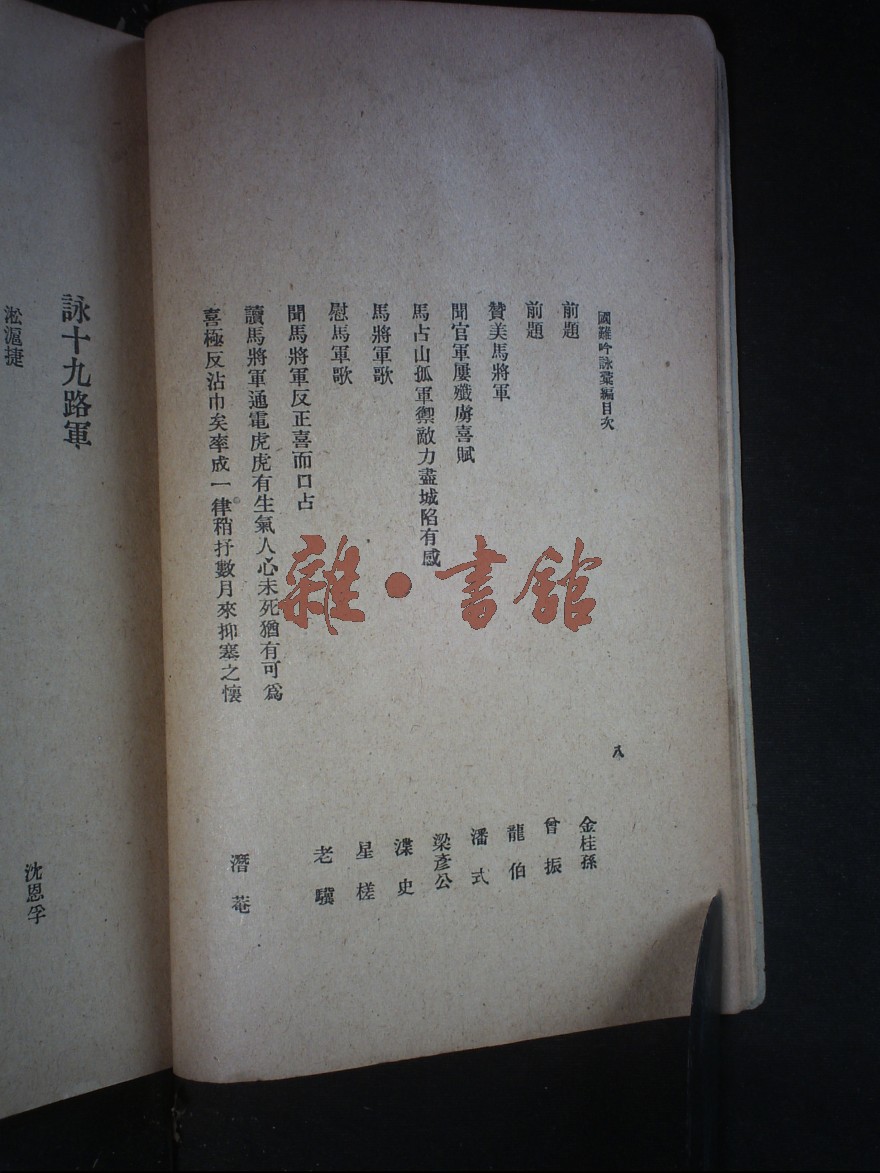 國難吟詠彙編目次
八
前題
金桂孫
前題
曾振
贊美馬將軍
龍伯
聞官軍屢殲虜喜賦
潘式
馬占山孤軍禦敵力盡城陷有感
梁彥公
馬將軍歌
渫史
慰馬軍歌
星槎
聞馬將軍反正喜而口占
老驥
讀馬將軍通電虎虎有生氣人心未死猶有可為
喜極反沾巾矣率成一律稍抒數月來抑塞之懷
潛菴
詠十九路軍
淞滬捷
沈恩孚
雜·書館